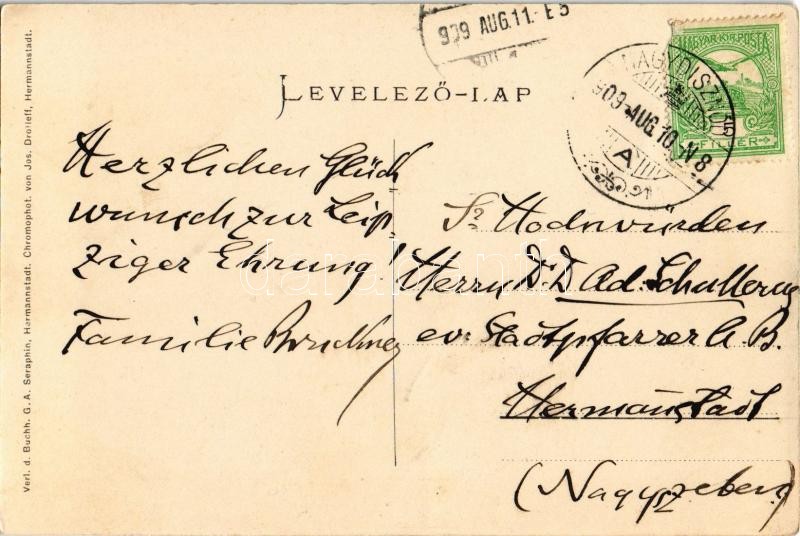 909 AUG.11.
MAGYAR·KIR·POSTA
FILLER
NAGYDISZNÓD
909 AUG.10. N 8
A
LEVELEZŐ-LAP
Herzlichen Glück
wunsch zur Leip
ziger Ehrung!
Familie Bruckner
Sr Hochwürden
Herrn Dr Ad. Schullerus
ev. Stadtpfarrer A. B.
Hermannstadt
(Nagyszeben)
Verl. d. Buchh. G. A. Seraphin, Hermannstadt. Chromophot. von Jos. Drotleff, Hermannstadt.
darabanth